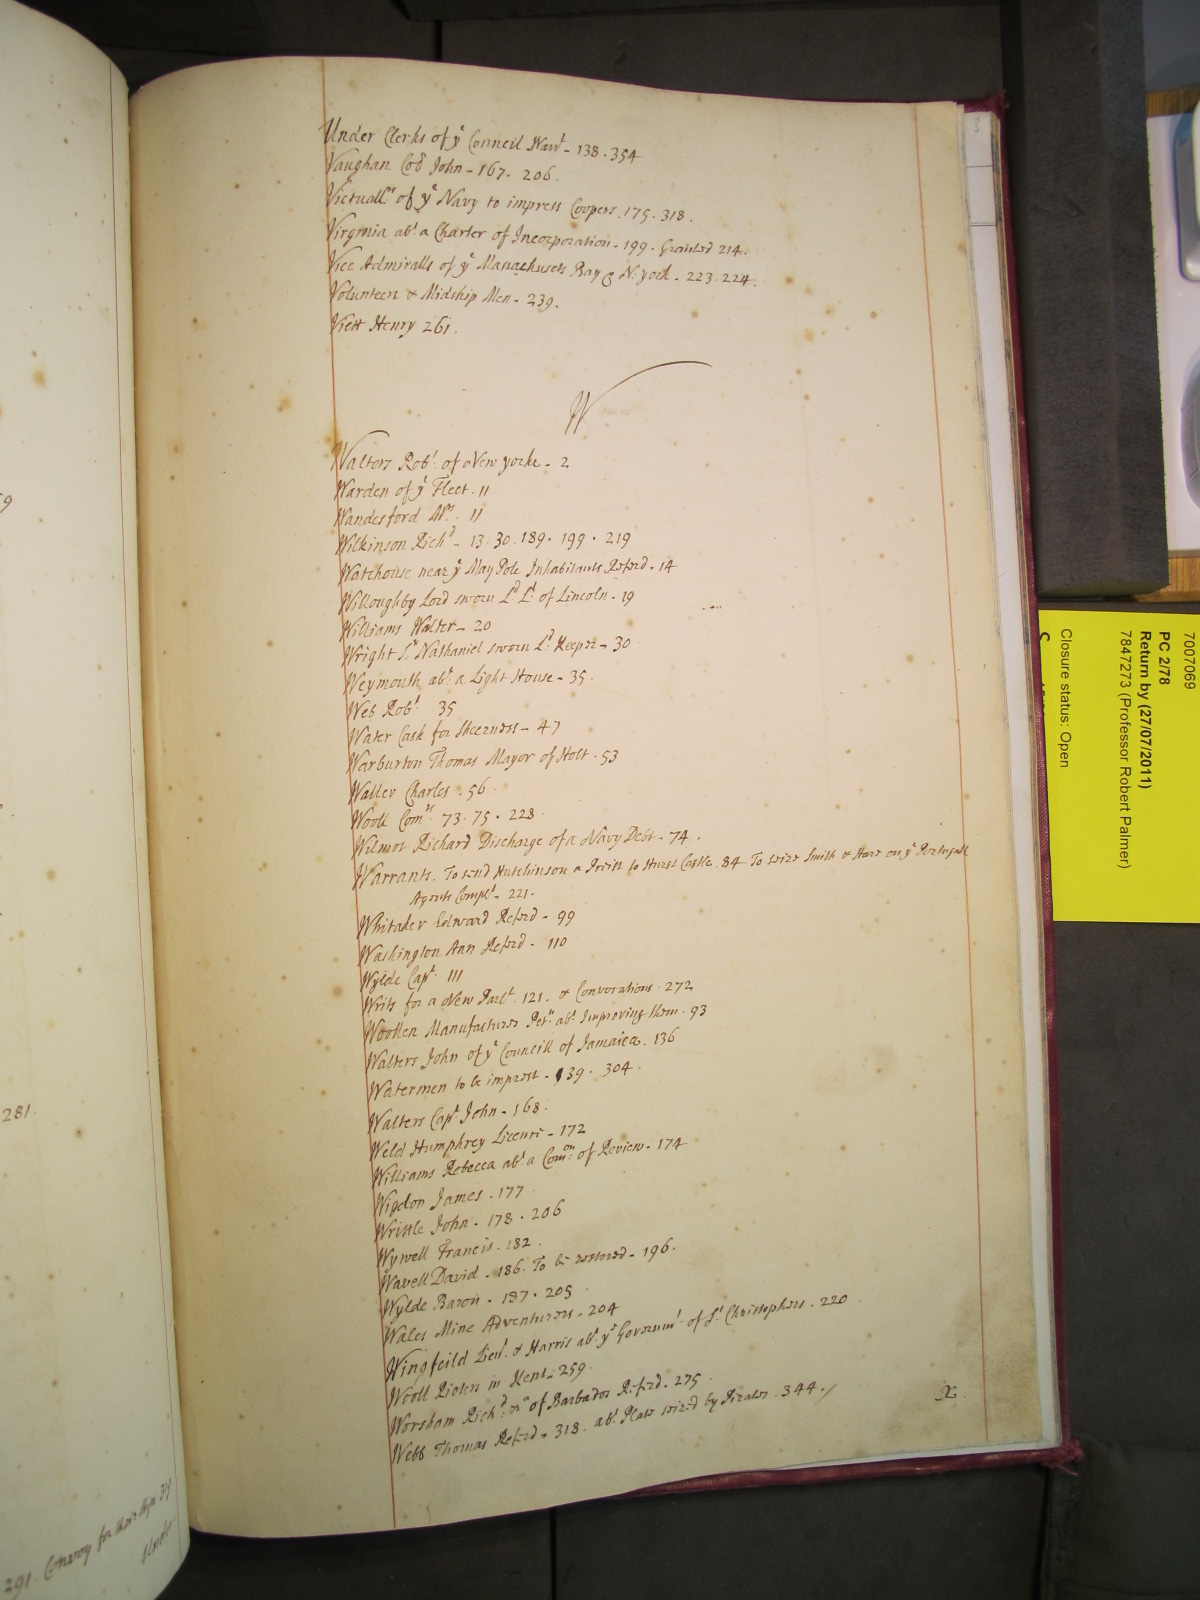 Under Clerks of yᵉ Council Warrᵗ - 138 . 354
Vaughan Coɫ John - 167 . 206 .
Victuallʳˢ of yᵉ Navy to impress Coopers . 175 . 318 .
Virginia abᵗ a Charter of Incorporation - 199 . Granted 214 .
Vice Admiralls of yᵉ Massachusets Bay & N. york - 223 . 224 .
Volunteers & Midship Men - 239 .
Viett Henry 261 .
W
Walters Robᵗ of New yorke - 2
Warden of yᵉ Fleet . 11
Wandesford Mʳ . 11
Wilkinson Richᵈ - 13 . 30 . 189 . 199 . 219
Watchouse near yᵉ May Pole Inhabitants Referd . 14
Willoughby Lord sworn Lᵈ Lᵗ of Lincoln . 19
Williams Walter - 20
Wright Sʳ Nathaniel sworn Lᵈ Keeper - 30
Weymouth abᵗ a Light House - 35 .
Web Robᵗ 35
Water Cask for Sheerness - 47
Warburton Thomas Mayor of Holt . 53
Waller Charles . 56
Wooll Comʳˢ 73 . 75 . 223
Wilmot Richard Discharge of a Navy Debt - 74 .
Warrants . To send Hutchinson a Preist to Hurst Castle . 84 To seize Smith & Hare on yᵉ Portugall
Agents Complᵗ - 221 .
Whitaker Edward Referd - 99
Washington Ann Referd - 110
Wylde Capᵗ 111
Writs for a New Parlᵗ . 121 . & Convocations . 272
Woollen Manufactures Petⁿ abᵗ Improving them . 93
Walters John of yᵉ Councill of Jamaica . 136
Watermen to be imprest - 139 . 304 .
Walters Capᵗ John - 168 .
Weld Humphrey Licence - 172
Williams Rebecca abᵗ a Comᵒⁿ : of Review - 174
Wigdon James . 177
Writtle John - 178 . 206
Wywell Francis . 182 .
Wavell David - 186 . To be restored - 196 .
Wylde Baron - 187 . 205
Wales Mine Adventurers - 204
Wingfeild Lieuᵗ & Harris abᵗ yᵉ Governmᵗ of Sᵗ Christophers . 220
Wooll Picters in Kent - 259 .
Worsham Richᵈ of Barbados Referd . 275
Webb Thomas Referd - 318 . abᵗ Plate seized by Pirates . 344 . /
X
281 .
291 . Convoy for their Ship 319
Under
7007069
PC 2/78
Return by (27/07/2011)
7847273 (Professor Robert Palmer)
Closure status: Open